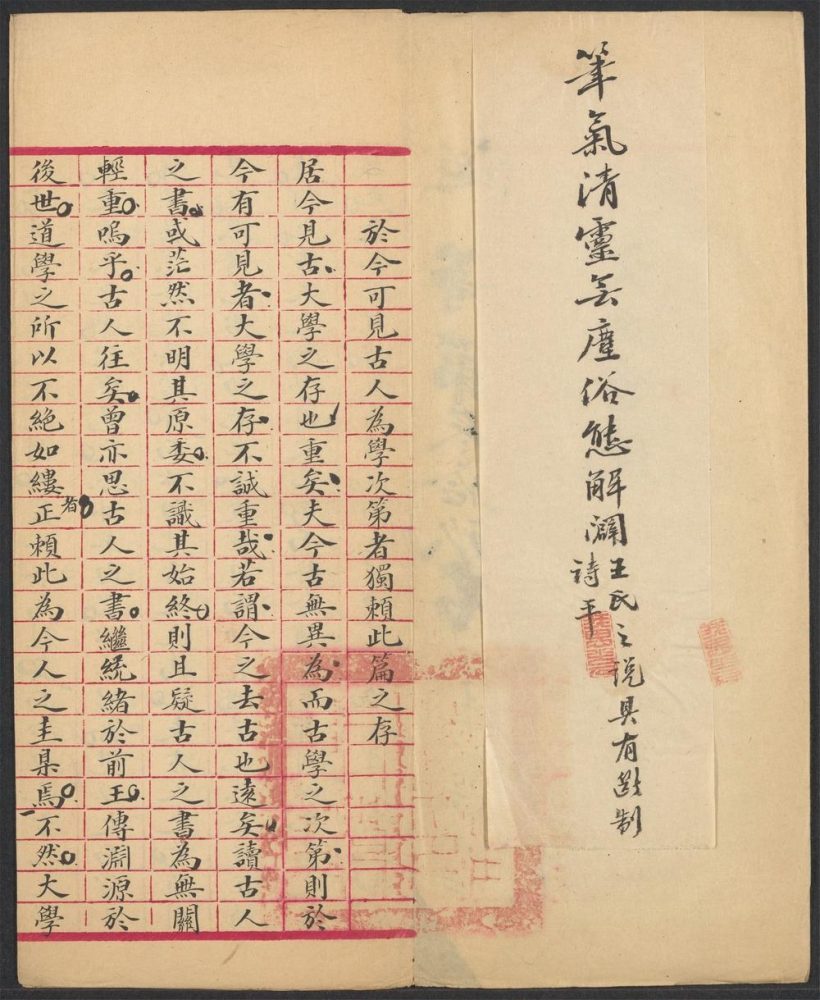 筆氣清靈无塵俗態解
王氏之說具有斷制
詩平
於今可見古人為學次第者獨賴此篇之存
居今見古大學之存也重矣夫今古無異為而古學之次第則於
今有可見者大學之存不誠重哉若謂今之去古也遠矣讀古人
之書或茫然不明其原委不識其始終則且疑古人之書為無關
輕重嗚乎古人往矣曾亦思古人之書繼統緒於前王傳淵源於
後世道學之所以不絕如縷者正賴此為今人之圭臬焉不然大學